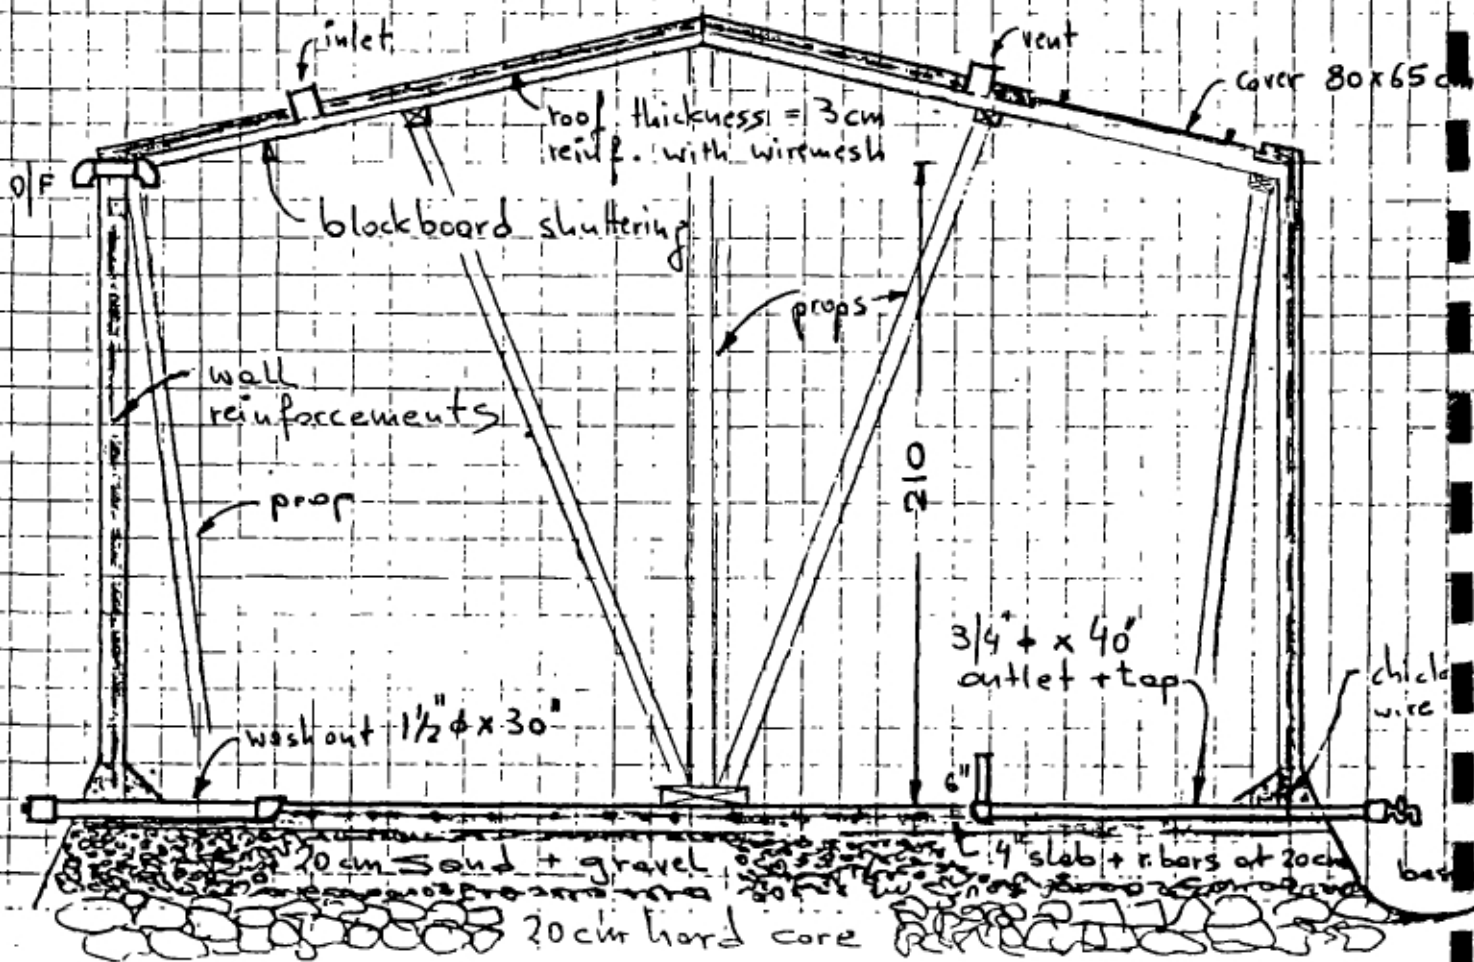 inlet
vent
cover 80x65 c
roof thickness = 3cm
reinf. with wiremesh
O/F
blockboard shuttering
props
wall
reinforcements
210
prop
3/4" ϕ x 40"
outlet + tap
wire
washout 1½" ϕ x 30"
6"
20cm sand + gravel
4" slab + r.bars at 20cm
20cm hard core